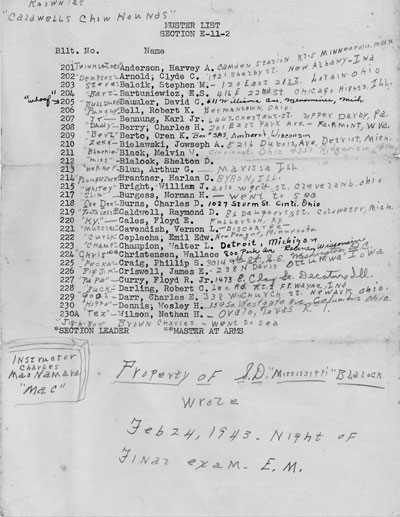 KNOWN AS
"CALDWELLS CHOW HOUNDS"
MUSTER LIST
SECTION E-11-2
Bllt. No. Name
201 Anderson, Harvey A. CAMDEN STATION RT-5 MINNEAPOLIS, MINN
202 "DEMPSEY" Arnold, Clyde C. 1921 Shelby St. New Albany-Ind
203 STEVE Balcik, Stephem M. - 120 EAST 21 ST. LORAIN OHIO
204 "BART" Bartusiewicz, E.S. 416 E 22nd ST CHICAGO HIGHTS, ILL,
"whong" *205 Baumler, David C. 611 Williams Ave, Menominee, Mich
206 "PANCHO" Bell, Robert K. Germantown, Ohio
207 "JY" Bennung, Karl Jr. Chestnut St. Upper Darby, Pa.
208 "DADDY" Berry, Charles H. 201 East Park Ave - FAIRMONT, W.VA.
209 "BERT" Berto, Oren K. Box 583, Amherst, Wisconsin
210 ZEKE Bielawski, Jowseph A. 5216 DUBOIS, AVE, DETROIT, MICH.
211 "BLACKIE" Black, Melvin W. Cincinnati, Ohio
212 "MISS" Blalock, Shelton D.
213 Blum, Arthur G. MARISSA ILL
214 Brantner, Harlan C. BYRON, ILL
215 "WHITEY" Bright, William J. CLEVELAND, Ohio
217 SLIM Burgess, Norman H. - WENT TO SEA
218 Burns, Charles D. 1027 STURM ST. CINTI. OHIO
219 Caldwell, Raymond D. 86 DAUGHERTY ST. COLDWATER, MICH.
220 "KY" Cales, Floyd E. FULLERTON, KY
221 Cavendish, Vernon L. - DISCHARGE
222 "CURLY" Cepleoha, Emil Edw. NEW PRAGUE, MINNESOTA
223 "CHAMP" Champion, Walter L. Detroit, Michigan
224 "CHRIS" Christensen, Wallace 800 Park Ave Racine, Wisconsin
225 Craig, Philip S. 3014 9th ST. S.E. Washington
226 "BIG JIM" Criswell, James E. - 238 N DAVIS OTTUMWA IOWA
227 "PAPPY" Curry, Floyd R. Jr. 1473 E. Clay St. Decatur, Ill.
228 "PUCK" Darling, Robert C. RT # FT. WAYNE, IND
229 Darr, Charles E. 338 W CHURCH ST. NEWARK, OHIO.
230 "HIPPO" Dennis, Wesley H. Westgate Ave - Columbus Ohio
230A "TEX" Wilson, Nathan H. - OVALO, TEXAS R. 1.
BROWN CHARLES - WENT TO SEA
*SECTION LEADER **MASTER AT ARMS
INSTRUCTOR
CHARLES
MACNAMARA
"MAC"
PROPERTY OF S.D. "MISSISSIPPI" BLALOCK
WROTE
FEB 24, 1943 - NIGHT OF
FINAL EXAM - E.M.